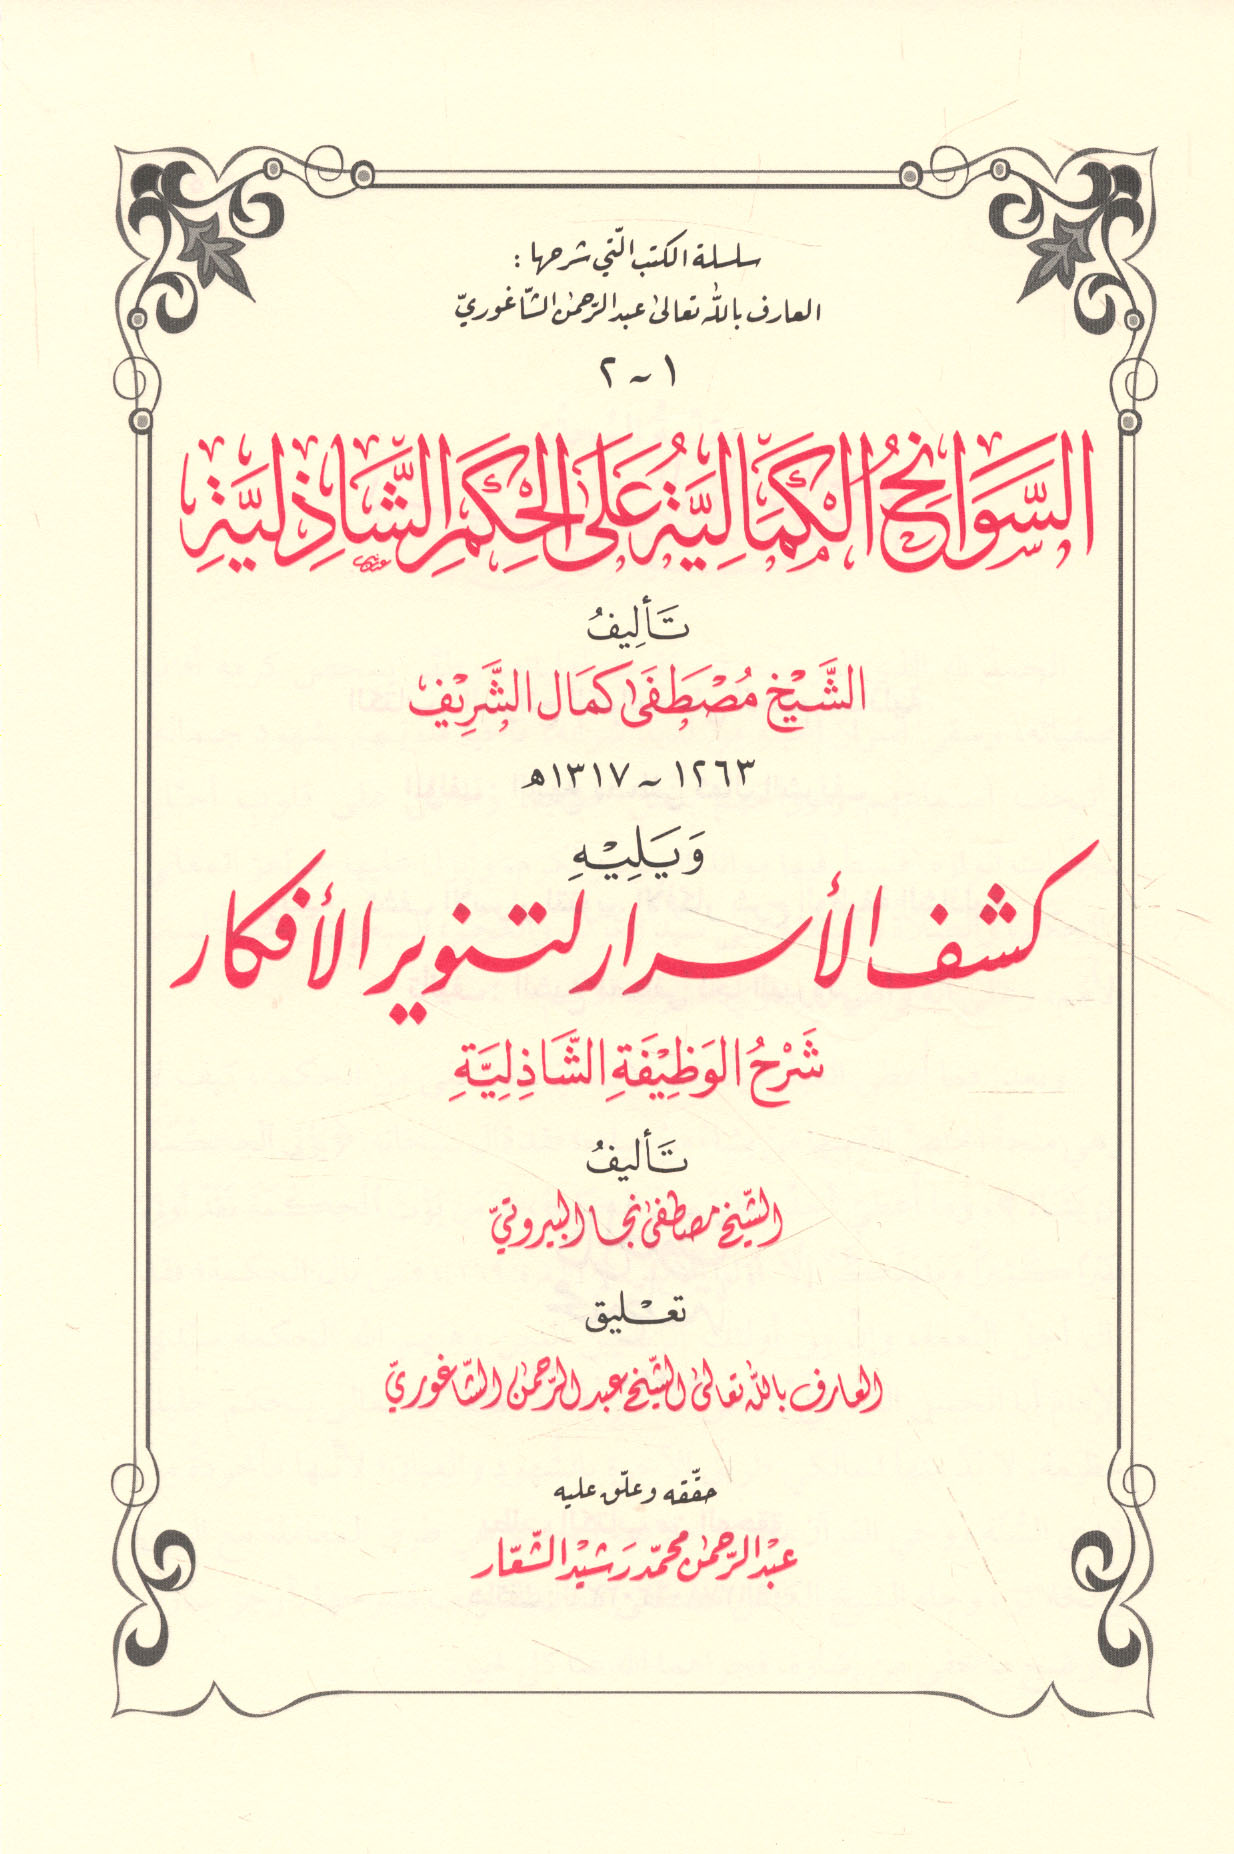 سلسلة الكتب الّتي شرحها :
العارف بالله تعالى عبد الرّحمن الشّاغوريّ
١ ~ ٢
السَّوَانِحُ الكَمَالِيَّةُ عَلَى الحِكَمِ الشَّاذِلِيَّةِ
تَأْلِيفُ
الشَّيْخ مُصْطَفَى كمَال الشَّرِيْف
١٢٦٣ ~ ١٣١٧ه
وَيَلِيْهِ
كشف الأسرار لتنوير الأفكار
شَرْحُ الوَظِيْفَةِ الشَّاذِلِيَّةِ
تَأليفُ
الشّيخ مصطفى نجا البيروتيّ
تعْليق
العارف بالله تعالى الشّيخ عبد الرّحمن الشّاغوريّ
حقّقه وعلّق عليه
عبْد الرّحمن محمّد رَشيْد الشّعّار